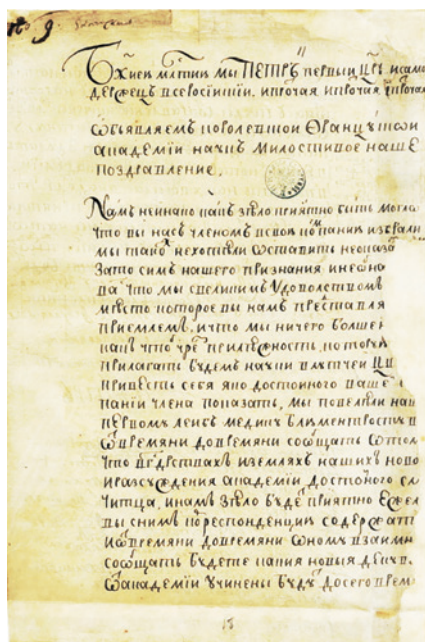 Бжиею млтию мы ПЕТРЪ первыи црь исамо
держецъ всеросиискии, ипрочая ипрочая ипрочая
ѡбъявляемъ королевскои Францускои
академии наукъ милостивое наше
поздравление.
Намъ неинако какъ зѣло приятно быть могло
что вы насъ членомъ всвою компанию избрали
мы такожъ нехотѣли ѡставить непоказа
зато симъ нашего признания
ва что мы свеликимъ удоволствомъ
мѣсто которое вы намъ представля
приемлемъ, ичто мы ничего болше
какъ чтобъ чрезъ прилѣжность, которую
прилагать будемъ науки влутчеи цв
привесть себя яко достоиного ваше
пании члена показать, мы повелѣли на
первому леибъ медику блюментросту
ѡвремяни довремяни сообщать
что вгдрствахъ иземляхъ нашихъ ново
иразсуждения академии достоиного сл
читца, инамъ зѣло будетъ приятно ежели
вы снимъ кореспонденцию содержать
иѡвремяни довремяни ѡному взаимн
сообщать будете какия новыя декув
ѡакадемии учинены будутъ досего врем